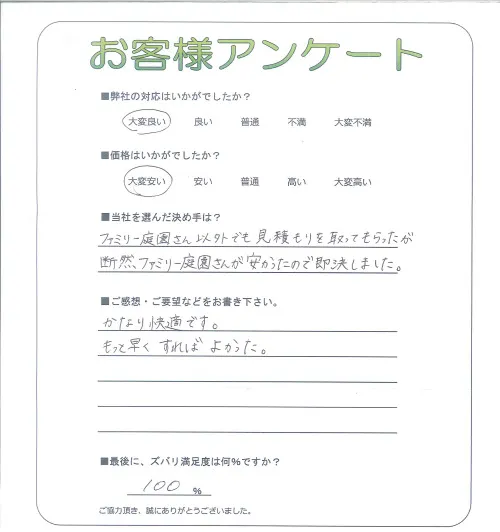 お客様アンケート
■弊社の対応はいかがでしたか？
大変良い 良い 普通 不満 大変不満
■価格はいかがでしたか？
大変安い 安い 普通 高い 大変高い
■当社を選んだ決め手は？
ファミリー庭園さん以外でも見積もりを取ってもらったが
断然、ファミリー庭園さんが安かったので即決しました。
■ご感想・ご要望などをお書き下さい。
かなり快適です。
もっと早くすればよかった。
■最後に、ズバリ満足度は何％ですか？
100 %
ご協力頂き、誠にありがとうございました。